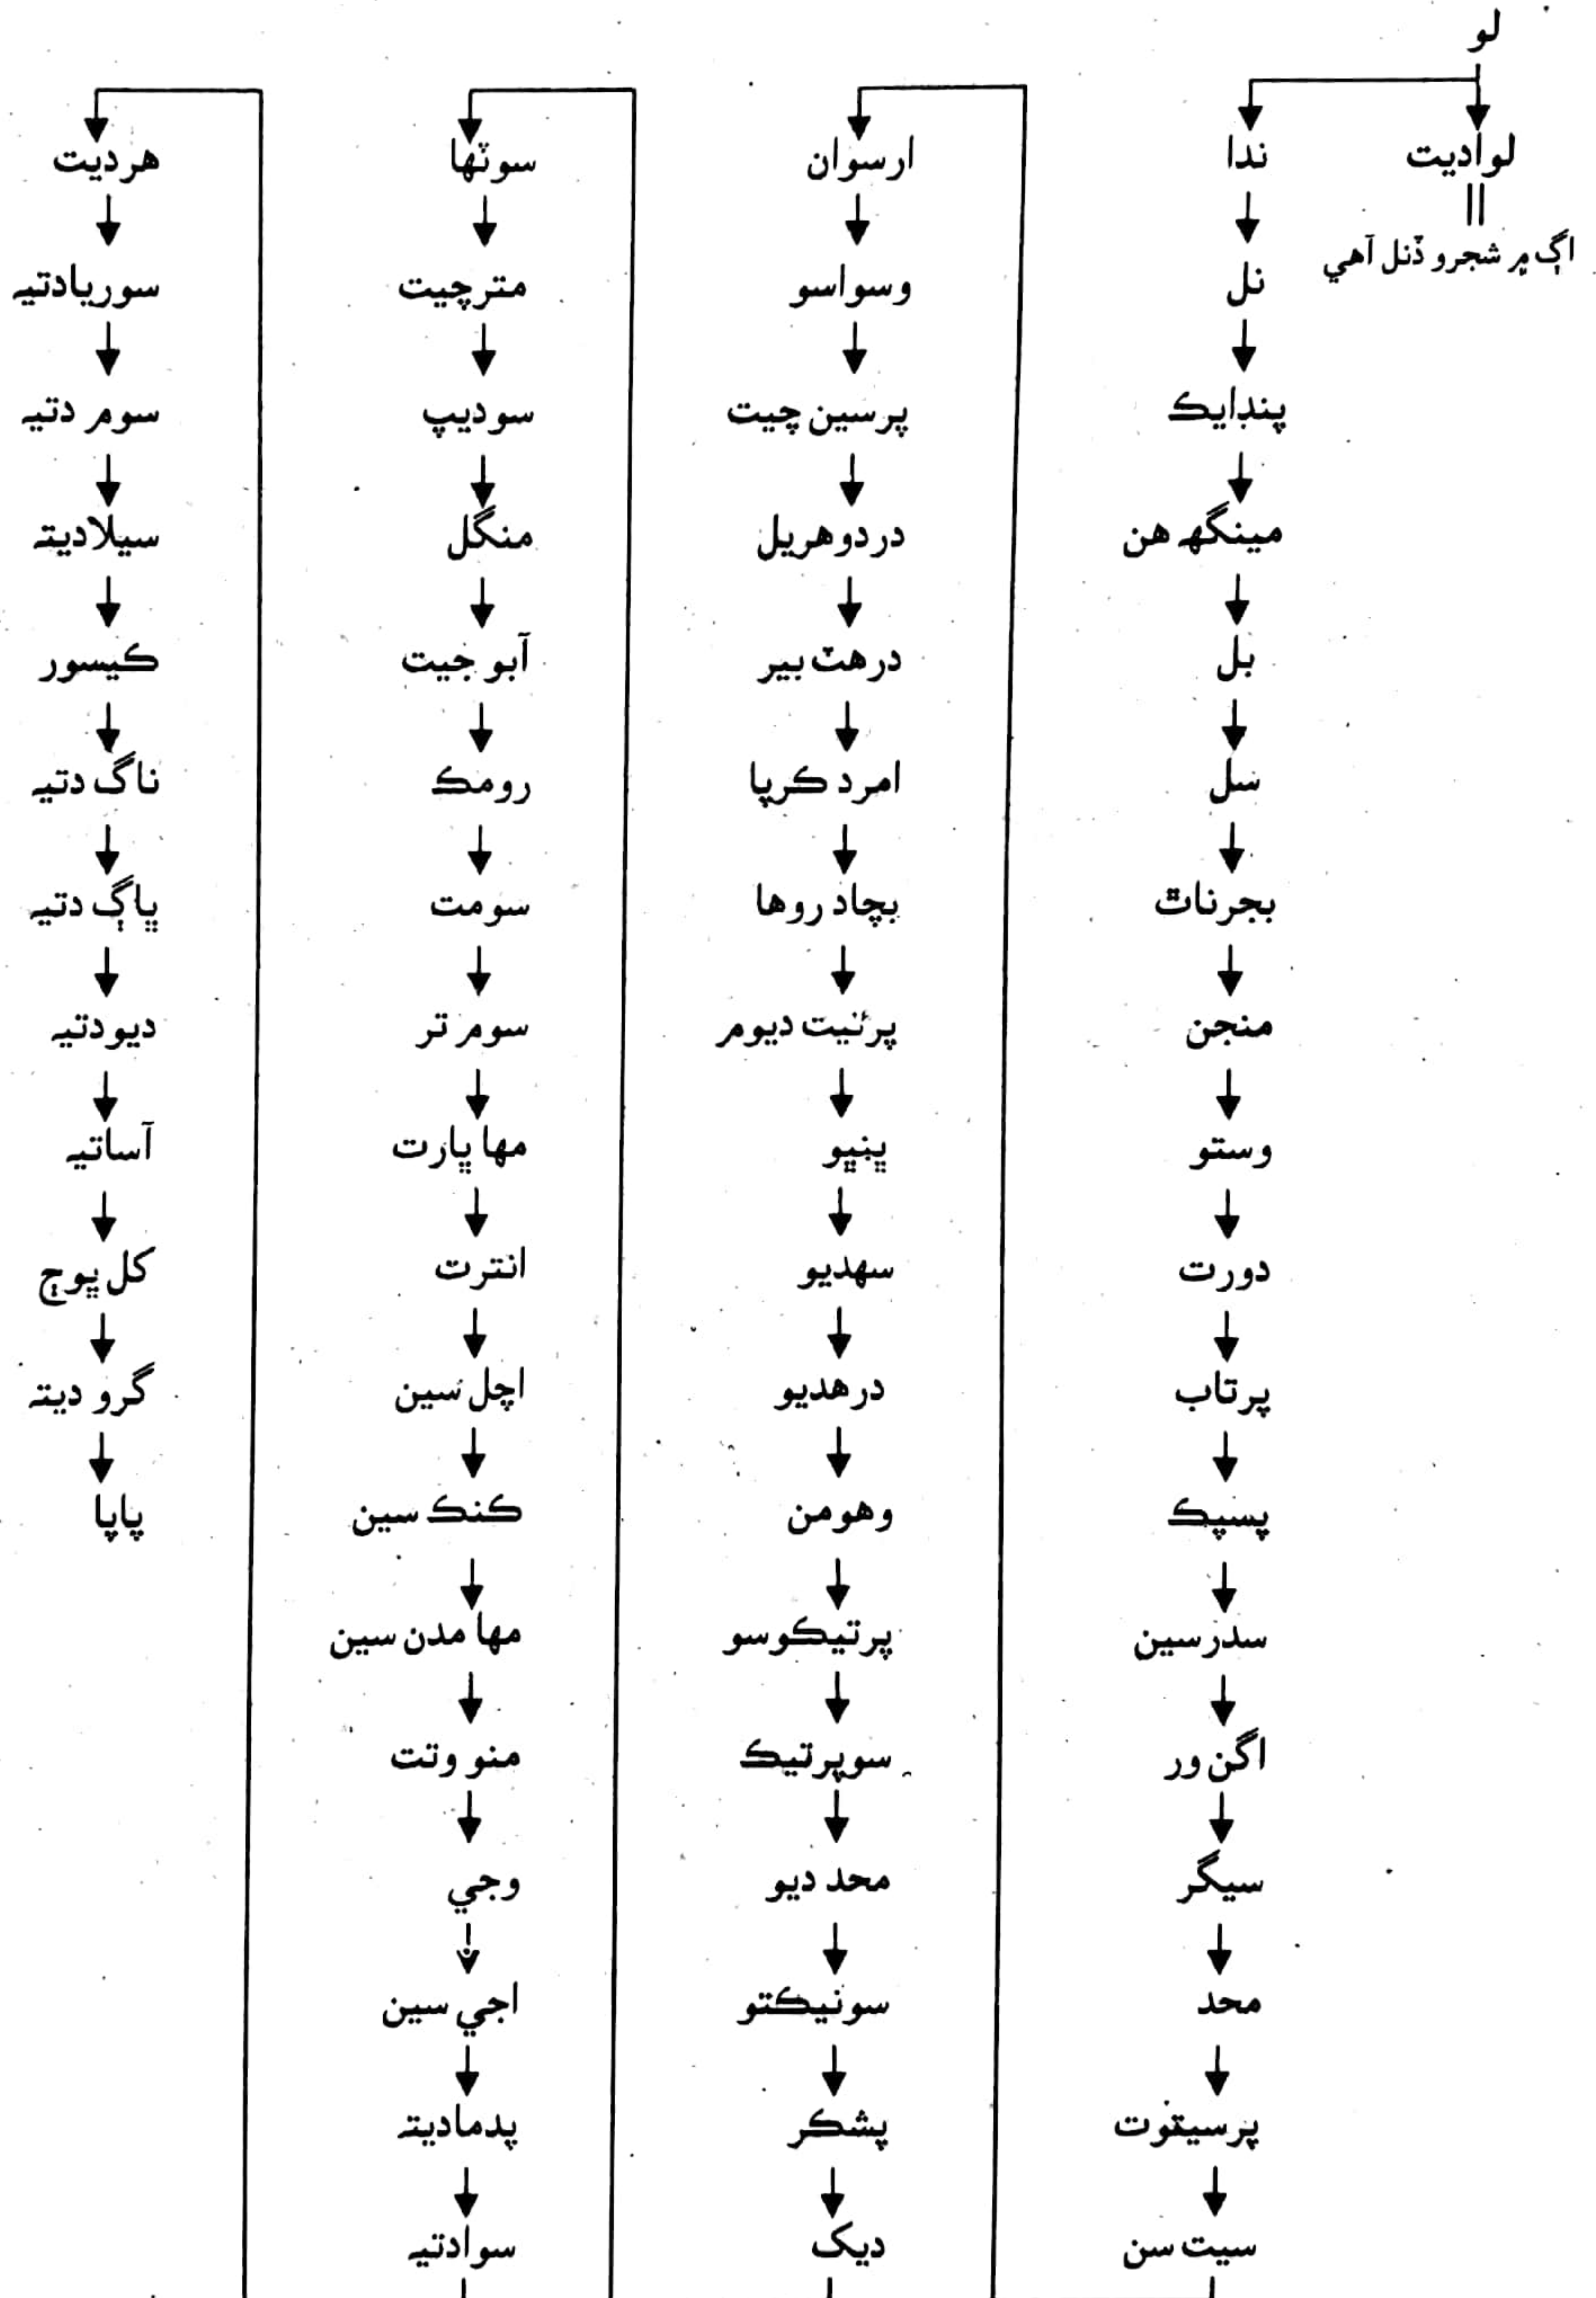 لو
لواديت
اڳ ۾ شجرو ڏنل آهي
ندا
نل
پنڊايڪ
مينگھ هن
بل
سل
بجرناٿ
منجن
وستو
دورت
پرتاب
پسپڪ
سدرسين
اگن ور
سيگر
محد
سيت سن
ارسوان
وسواسو
پرسين چيت
دردوهريل
درهٽ بير
امرد ڪرپا
بچاد روها
پرئيت ديوم
ڀنڀو
سهديو
درهديو
وهومن
پرتيڪوسو
سوپرتيڪ
محد ديو
سونيڪتو
پشڪر
ديک
سوٽها
مترچيت
سوديپ
منگل
آبو جيت
رومڪ
سومت
سوم تر
مها ڀارت
انترت
اچل سين
ڪنڪ سين
مها مدن سين
منو وتت
وجي
اجي سين
پدماديتہ
سوادتيہ
هرديت
سوريادتيہ
سوم دتيہ
سيلاديتہ
ڪيسور
ناگ دتيہ
ڀاڳ دتيہ
ديودتيہ
آساتيہ
کل ڀوڄ
گرو ديتہ
پاپا